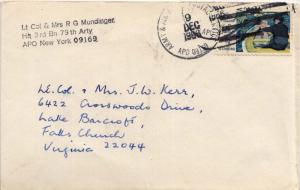 Lt Col & Mrs R G Mundinger
Hq 3rd Bn 79th Arty
APO New York 09169
9
DEC
APO
Lt. Col. & Mrs. J.W. Kerr,
6422 Crosswoods Drive,
Lake Barcroft,
Falls Church
Virginia 22044